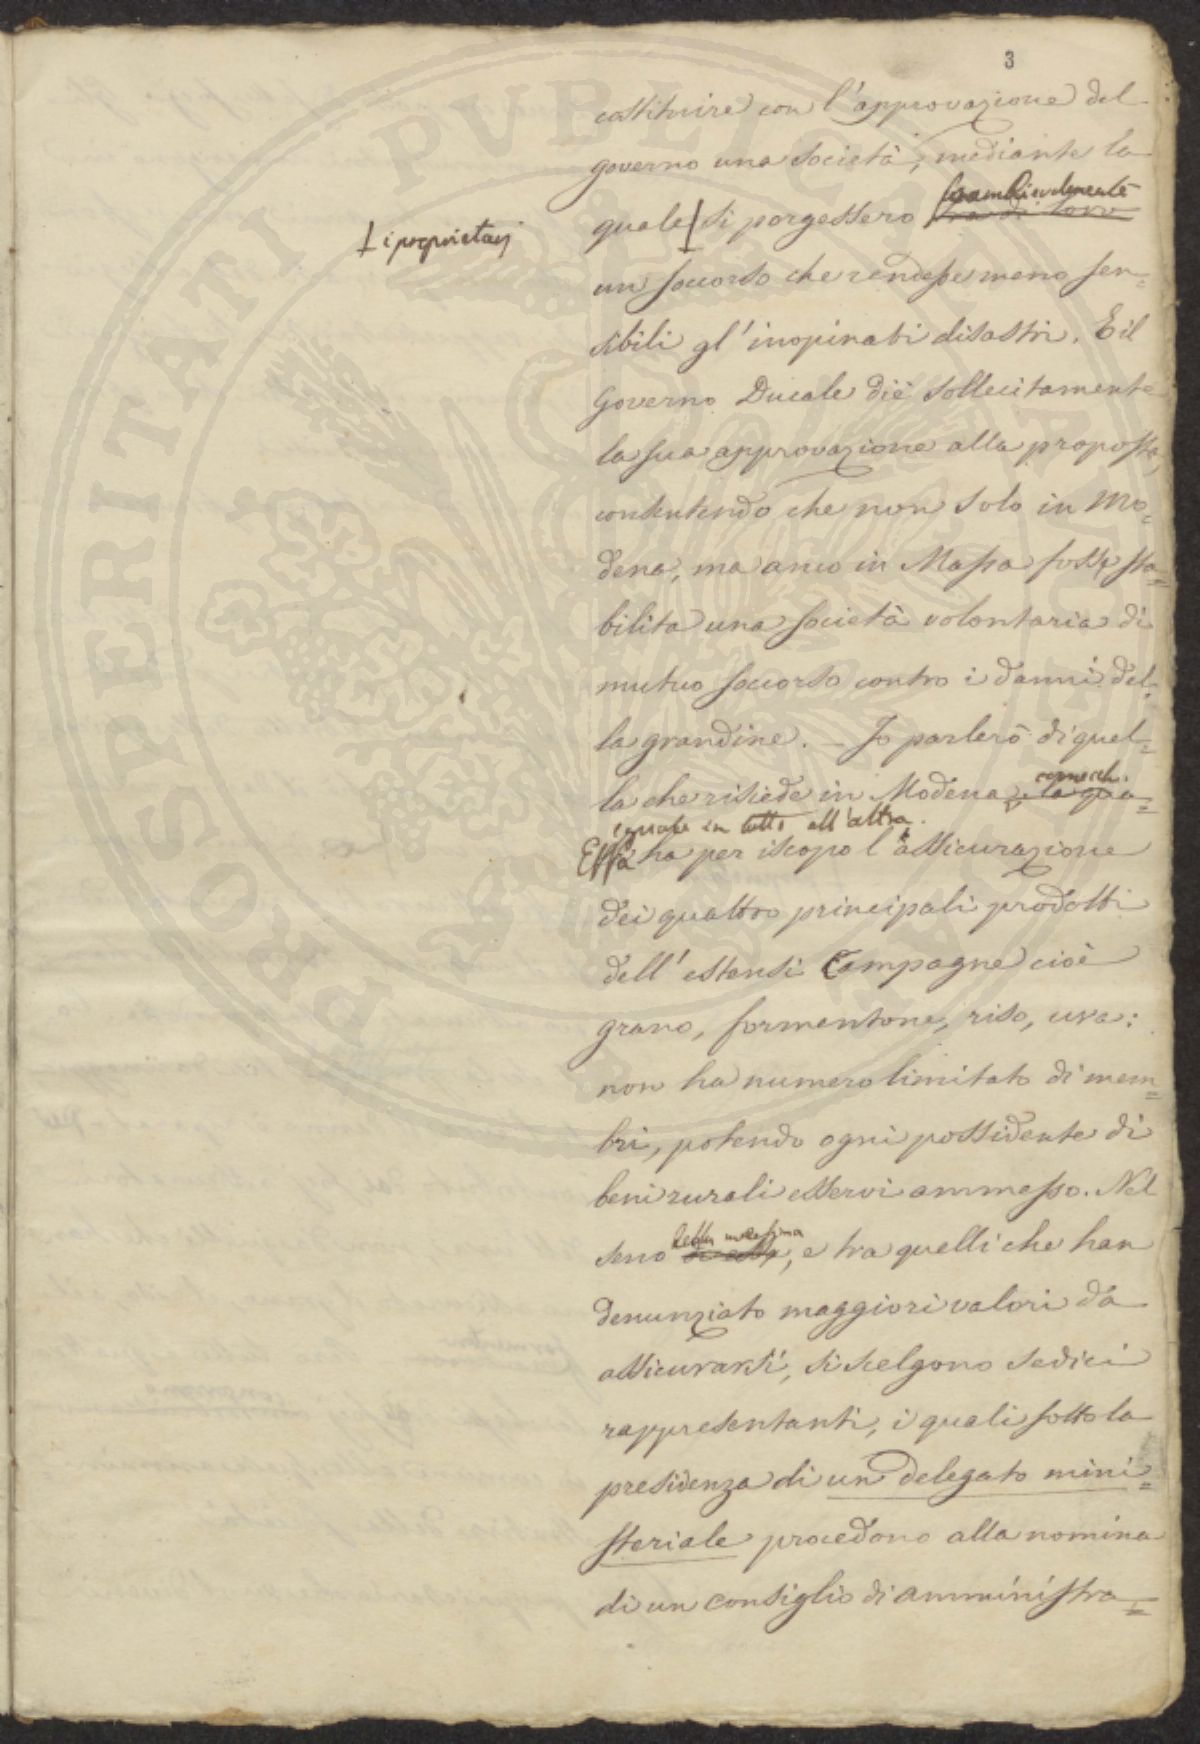 3
costituire con l'approvazione del
governo una società, mediante la
scambievolmente
quale si porgessero fra di loro
i proprietarj
un soccorso che rendesse meno sen=
sibili gl'inopinati disastri. E il
Governo Ducale diè sollecitamente
la sua approvazione alla proposta,
consentendo che non solo in Mo=
dena, ma anco in Massa fosse sta=
bilita una società volontaria di
mutuo soccorso contro i danni del=
la grandine. – Io parlerò di quel=
comecchè
la che risiede in Modena, la qua=
eguale in tutto all'altra.
Essa ha per iscopo l'assicurazione
dei quattro principali prodotti
dell'estensi Campagne cioè
grano, formentone, riso, uva:
non ha numero limitato di mem=
bri, potendo ogni possidente di
beni rurali esservi ammesso. Nel
della medesima
seno di essa, e tra quelli che han
denunziato maggiori valori da
assicurarsi, si scelgono sedici
rappresentanti, i quali sotto la
presidenza di un delegato mini=
steriale procedono alla nomina
di un consiglio di amministra=
PROSPERITATI PVBLICAE